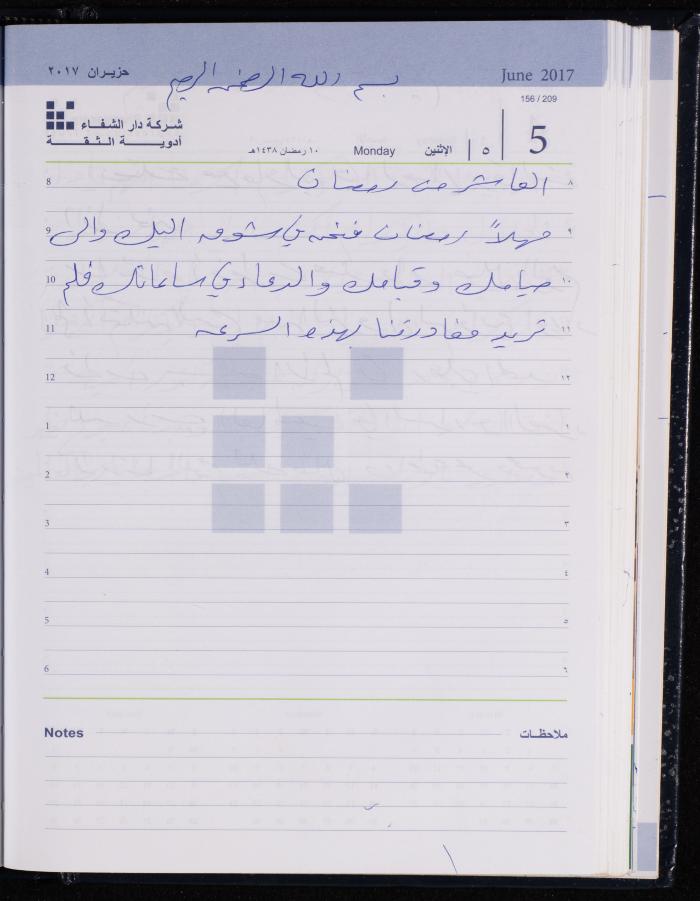 حزيـران ٢٠١٧
بسم الله الرحمن الرحيم
June 2017
156 / 209
شـركة دار الشفـاء
أدويـــة الـثـقـــة
١٠ رمضان ١٤٣٨هـ
Monday
الإثنين
٥
5
8 العاشر من رمضان ٨
9 مهلاً رمضان فنحن في شوق اليك والى ٩
10 صيامك وقيامك والدعاء في ساعاتك فلم ١٠
11 تريد مغادرتنا بهذه السرعه ١١
12 ١٢
1 ١
2 ٢
3 ٣
4 ٤
5 ٥
6 ٦
Notes ملاحظـات